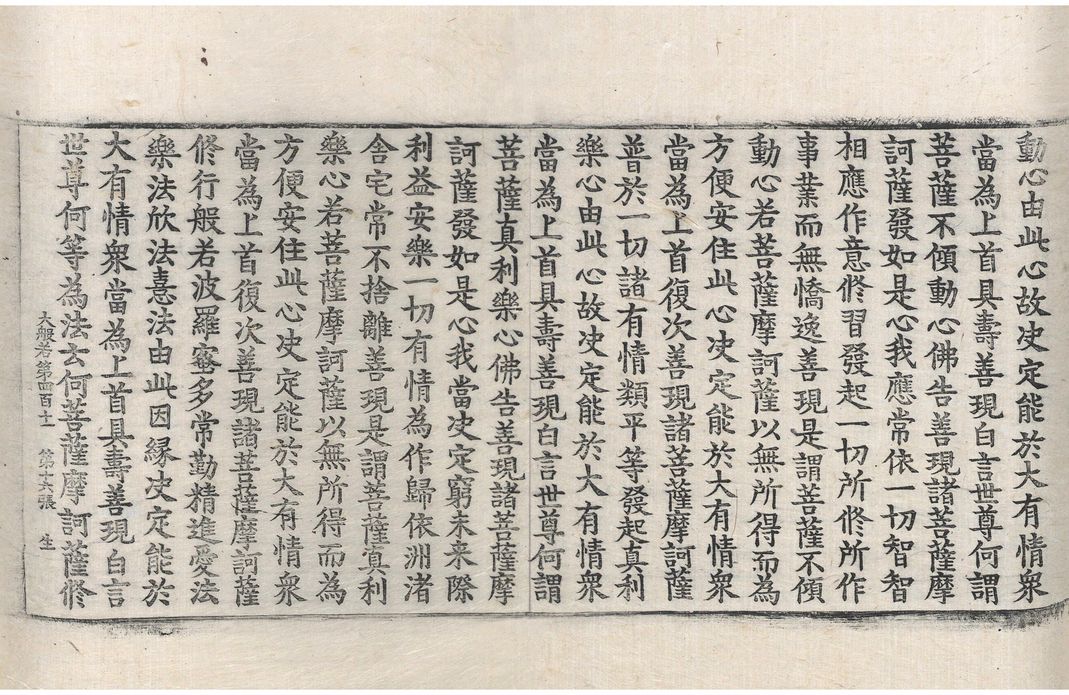 動心由此心故决定能於大有情衆
當為上首具壽善現白言世尊何謂
菩薩不傾動心佛告善現諸菩薩摩
訶薩發如是心我應常依一切智智
相應作意修習發起一切所修所作
事業而無憍逸善現是謂菩薩不傾
動心若菩薩摩訶薩以無所得而為
方便安住此心决定能於大有情衆
當為上首復次善現諸菩薩摩訶薩
普於一切諸有情類平等發起真利
樂心由此心故决定能於大有情衆
當為上首具壽善現白言世尊何謂
菩薩真利樂心佛告善現諸菩薩摩
訶薩發如是心我當决定窮未来際
利益安樂一切有情為作歸依洲渚
舍宅常不捨離善現是謂菩薩真利
樂心若菩薩摩訶薩以無所得而為
方便安住此心决定能於大有情衆
當為上首復次善現諸菩薩摩訶薩
修行般若波羅蜜多常勤精進愛法
樂法欣法憙法由此因緣决定能於
大有情衆當為上首具壽善現白言
世尊何等為法云何菩薩摩訶薩修
大般若第四百十一 第十六張 生